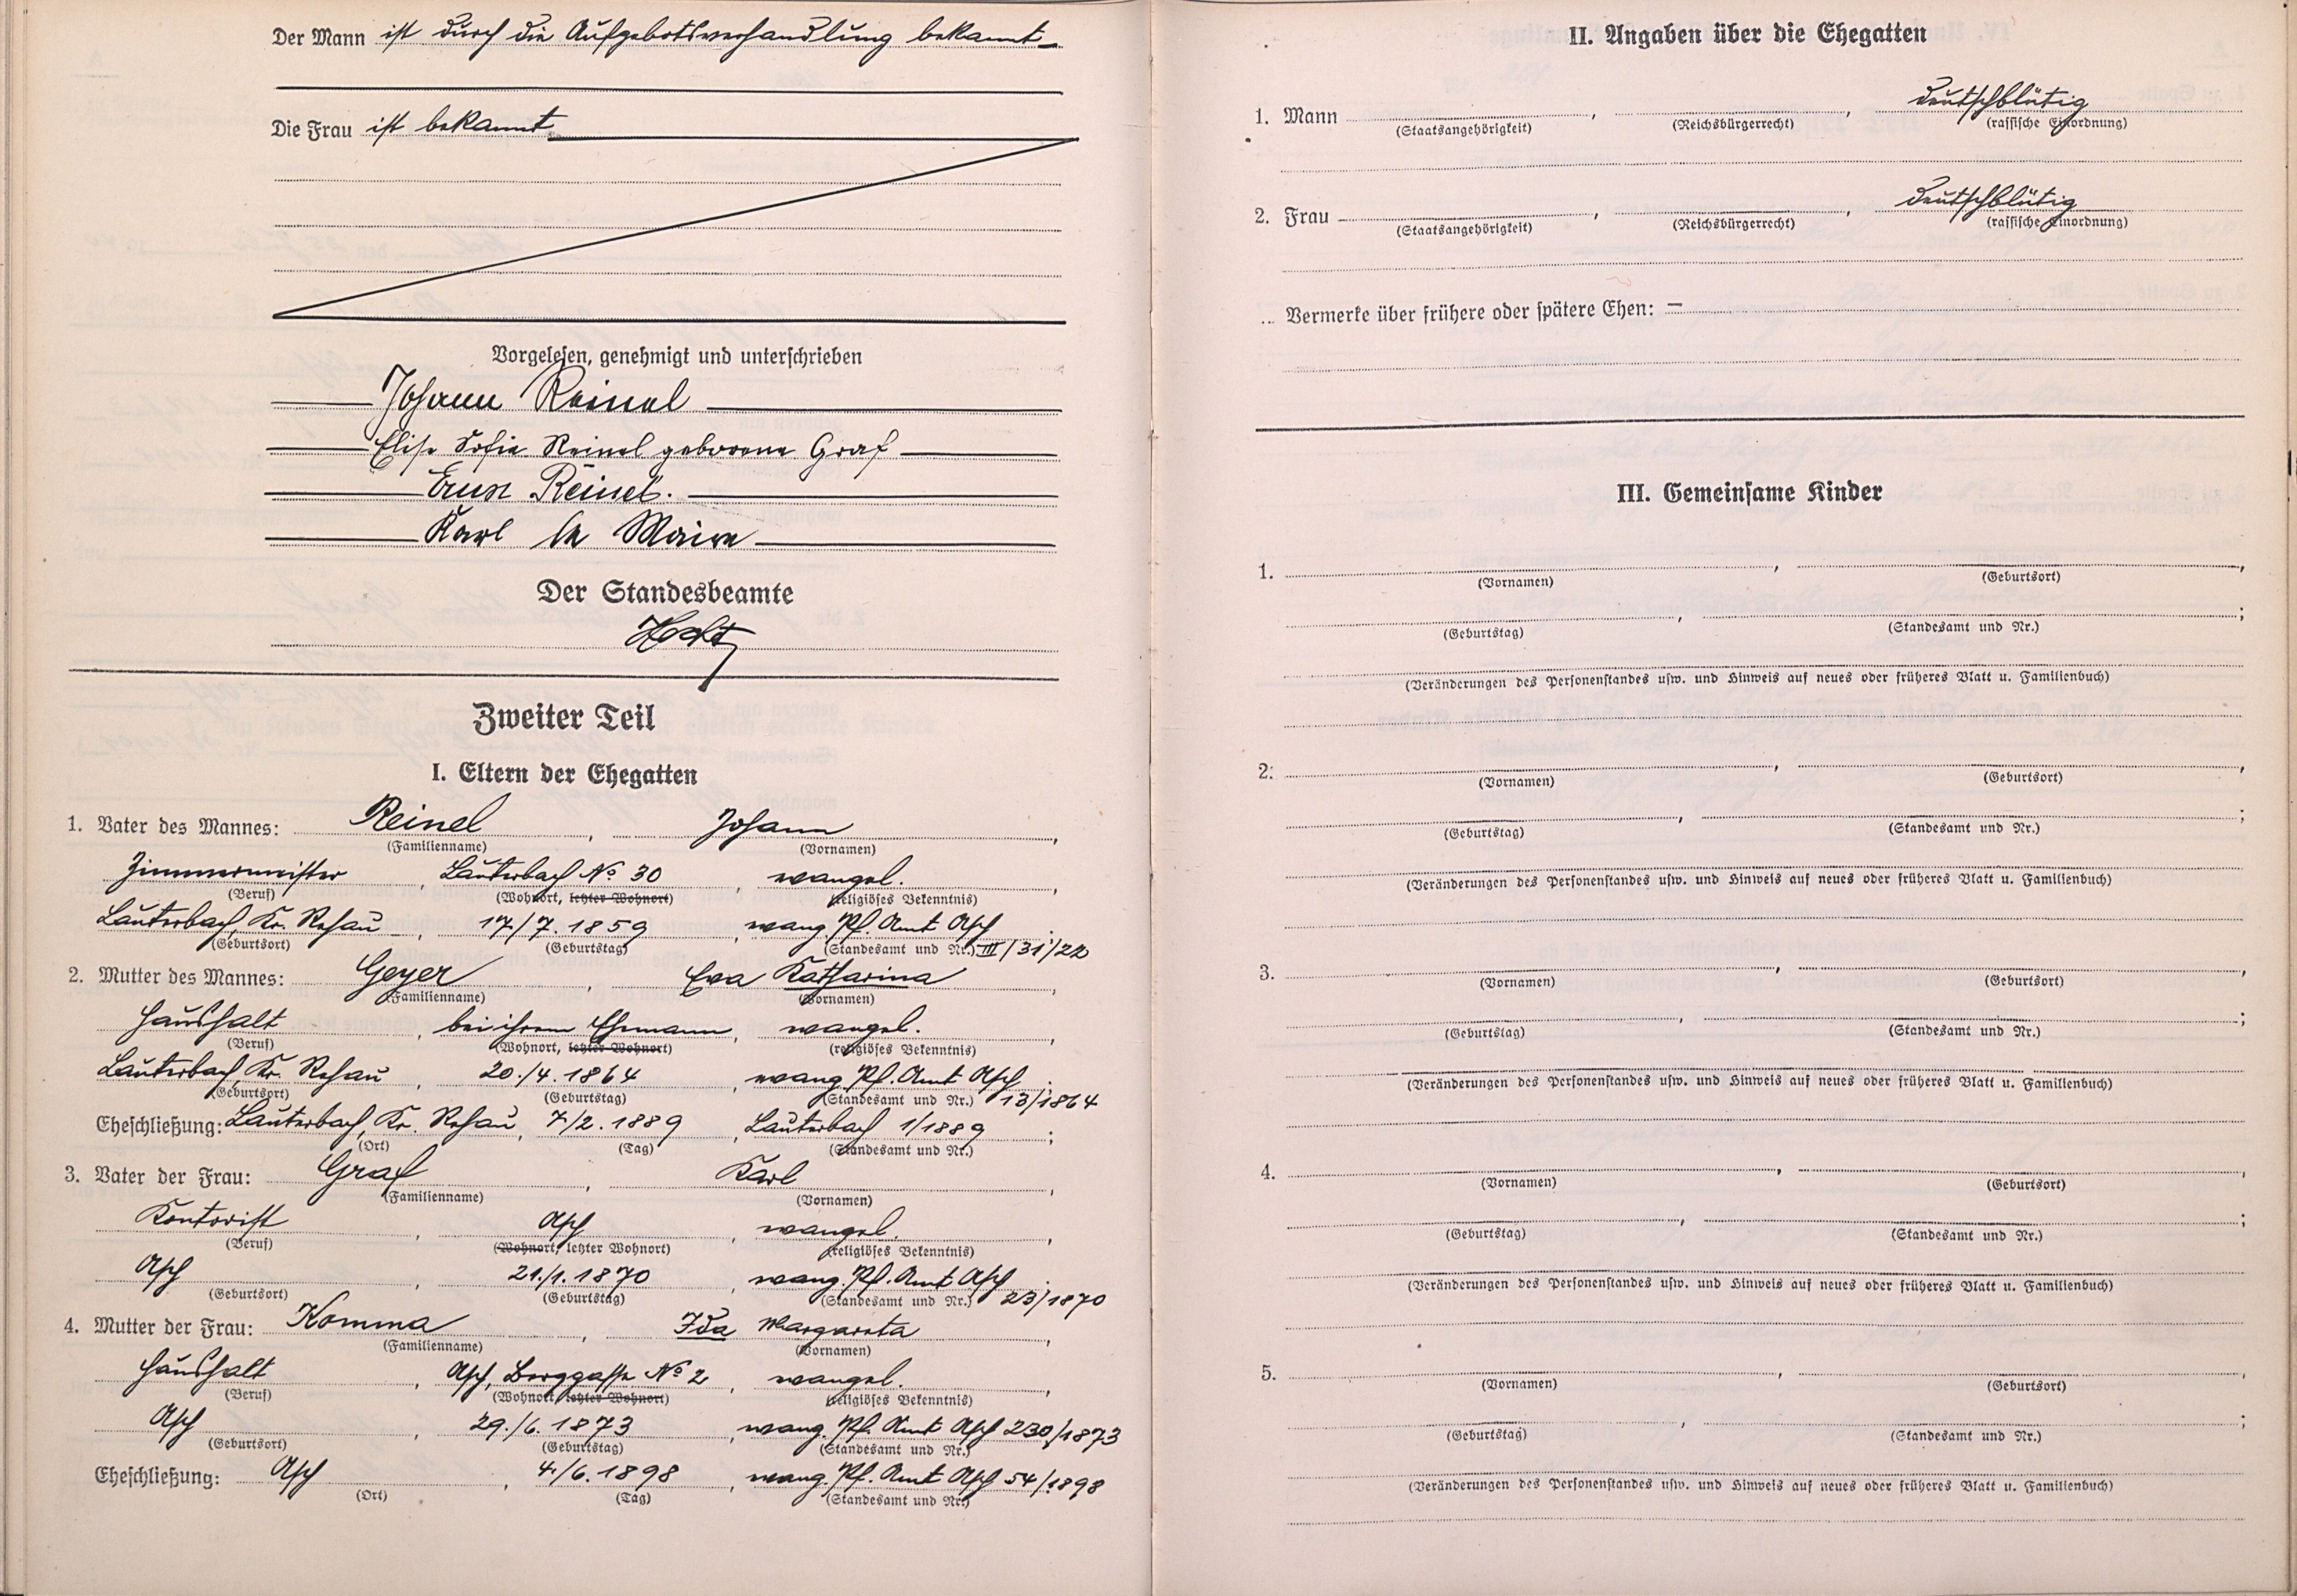 Der Mann ist durch die Aufgebotsverhandlung bekannt
Die Frau ist bekannt
Vorgelesen, genehmigt und unterschrieben
Johann Reinel
Elise Sofie Reinel geborene Graf
Ernst Reinel.
Karl Le Maire
Der Standesbeamte
Zweiter Teil
I. Eltern der Ehegatten
1. Vater des Mannes: Reinel, Johann,
(Familienname) (Vornamen)
Zimmermeister, Lauterbach No 30, evangel.,
(Beruf) (Wohnort, letzter Wohnort) (religiöses Bekenntnis)
Lauterbach, Kr. Rehau, 17/7. 1859, evang. Pf. Amt Asch;
(Geburtsort) (Geburtstag) (Standesamt und Nr.) III/31/22
2. Mutter des Mannes: Geyer, Eva Katharina,
(Familienname) (Vornamen)
Haushalt, bei ihrem Ehemann, evangel.,
(Beruf) (Wohnort, letzter Wohnort) (religiöses Bekenntnis)
Lauterbach, Kr. Rehau, 20./4. 1864, evang. Pf. Amt Asch;
(Geburtsort) (Geburtstag) (Standesamt und Nr.) 13/1864
Eheschließung: Lauterbach, Kr. Rehau, 7/2. 1889, Lauterbach 1/1889;
(Ort) (Tag) (Standesamt und Nr.)
3. Vater der Frau: Graf, Karl,
(Familienname) (Vornamen)
Kontorist, Asch, evangel.,
(Beruf) (Wohnort, letzter Wohnort) (religiöses Bekenntnis)
Asch, 21./1. 1870, evang. Pf. Amt Asch;
(Geburtsort) (Geburtstag) (Standesamt und Nr.) 23/1870
4. Mutter der Frau: Komma, Ida Margareta,
(Familienname) (Vornamen)
Haushalt, Asch, Berggasse No 2, evangel.,
(Beruf) (Wohnort, letzter Wohnort) (religiöses Bekenntnis)
Asch, 29./6. 1873, evang. Pf. Amt Asch 230/1873
(Geburtsort) (Geburtstag) (Standesamt und Nr.)
Eheschließung: Asch, 4./6. 1898, evang. Pf. Amt Asch 54/1898
(Ort) (Tag) (Standesamt und Nr.)
II. Angaben über die Ehegatten
1. Mann , , deutschblütig
(Staatsangehörigkeit) (Reichsbürgerrecht) (rassische Einordnung)
2. Frau , , deutschblütig
(Staatsangehörigkeit) (Reichsbürgerrecht) (rassische Einordnung)
Vermerke über frühere oder spätere Ehen: —
III. Gemeinsame Kinder
1. , ,
(Vornamen) (Geburtsort)
, ;
(Geburtstag) (Standesamt und Nr.)
(Veränderungen des Personenstandes usw. und Hinweis auf neues oder früheres Blatt u. Familienbuch)
2. , ,
(Vornamen) (Geburtsort)
, ;
(Geburtstag) (Standesamt und Nr.)
(Veränderungen des Personenstandes usw. und Hinweis auf neues oder früheres Blatt u. Familienbuch)
3. , ,
(Vornamen) (Geburtsort)
, ;
(Geburtstag) (Standesamt und Nr.)
(Veränderungen des Personenstandes usw. und Hinweis auf neues oder früheres Blatt u. Familienbuch)
4. , ,
(Vornamen) (Geburtsort)
, ;
(Geburtstag) (Standesamt und Nr.)
(Veränderungen des Personenstandes usw. und Hinweis auf neues oder früheres Blatt u. Familienbuch)
5. , ,
(Vornamen) (Geburtsort)
, ;
(Geburtstag) (Standesamt und Nr.)
(Veränderungen des Personenstandes usw. und Hinweis auf neues oder früheres Blatt u. Familienbuch)